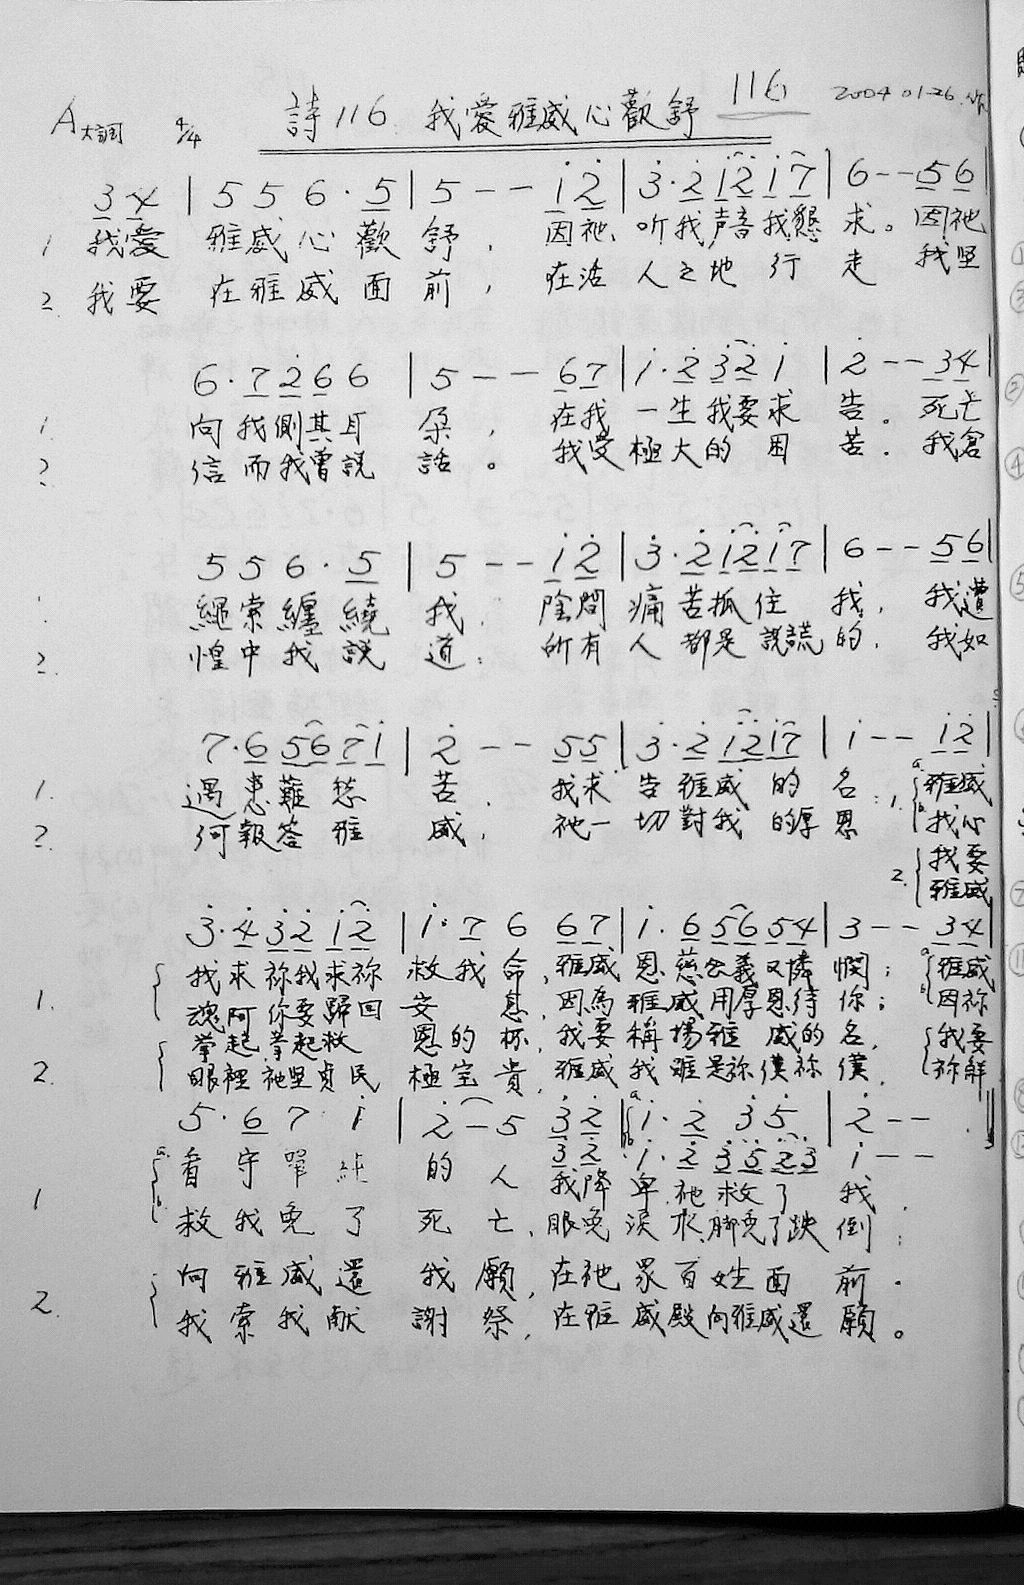 A大調 4/4 詩116 我愛雅威心歡舒 116 2004 01.26.作
3 4 | 5 5 6 · 5 | 5 - - i 2 | 3 · 2 i 2 i 7 | 6 - - 5 6 |
1 我愛 雅威心歡舒, 因祂 听我声音我懇求。因祂
2. 我要 在雅威面前, 在活人之地行走 我坚
6 · 7 2 6 6 | 5 - - 6 7 | i · 2 3 2 i | 2 - - 3 4 |
1. 向我側其耳朵, 在我一生我要求告. 死亡
2 信而我曾説話。我受極大的困苦. 我倉
5 5 6 · 5 | 5 - - i 2 | 3 · 2 i 2 i 7 | 6 - - 5 6 |
繩索纏繞我. 陰間痛苦抓住我, 我遭
2. 惶中我説道: 所有人都是説謊的. 我如
7 · 6 5 6 7 i | 2 - - 5 5 | 3 · 2 i 2 i 7 | i - - i 2 |
1. 遇患難愁苦. 我求告雅威的名: 1. a. 雅威
2. 何報答雅威, 祂一切對我的厚恩 b. 我心
2. 我要
雅威
3 · 4 3 2 i 2 | i · 7 6 6 7 | i · 6 5 6 5 4 | 3 - - 3 4 |
我求祢我求祢救我命, 雅威恩慈公義又憐憫; a. 雅威
1. 魂阿你要歸回安息, 因為雅威用厚恩待你; b 因祢
舉起舉起救恩的杯, 我要稱揚雅威的名, 我要
2. 眼裡祂坚貞民極宝貴, 雅威我雖是祢僕祢僕, 祢解
5 · 6 7 i | 2 - 5 3 2 | a i · 2 3 5 | 2 - - ‖
3 2 b i · 2 3 5 2 3 i - -
a. 看守單純的人 我降卑祂救了我.
1 b. 救我免了死亡, 眼免淚水, 脚免了跌倒;
向雅威還我願, 在祂眾百姓面前.
2. 我索我献謝祭, 在雅威殿向雅威還願。